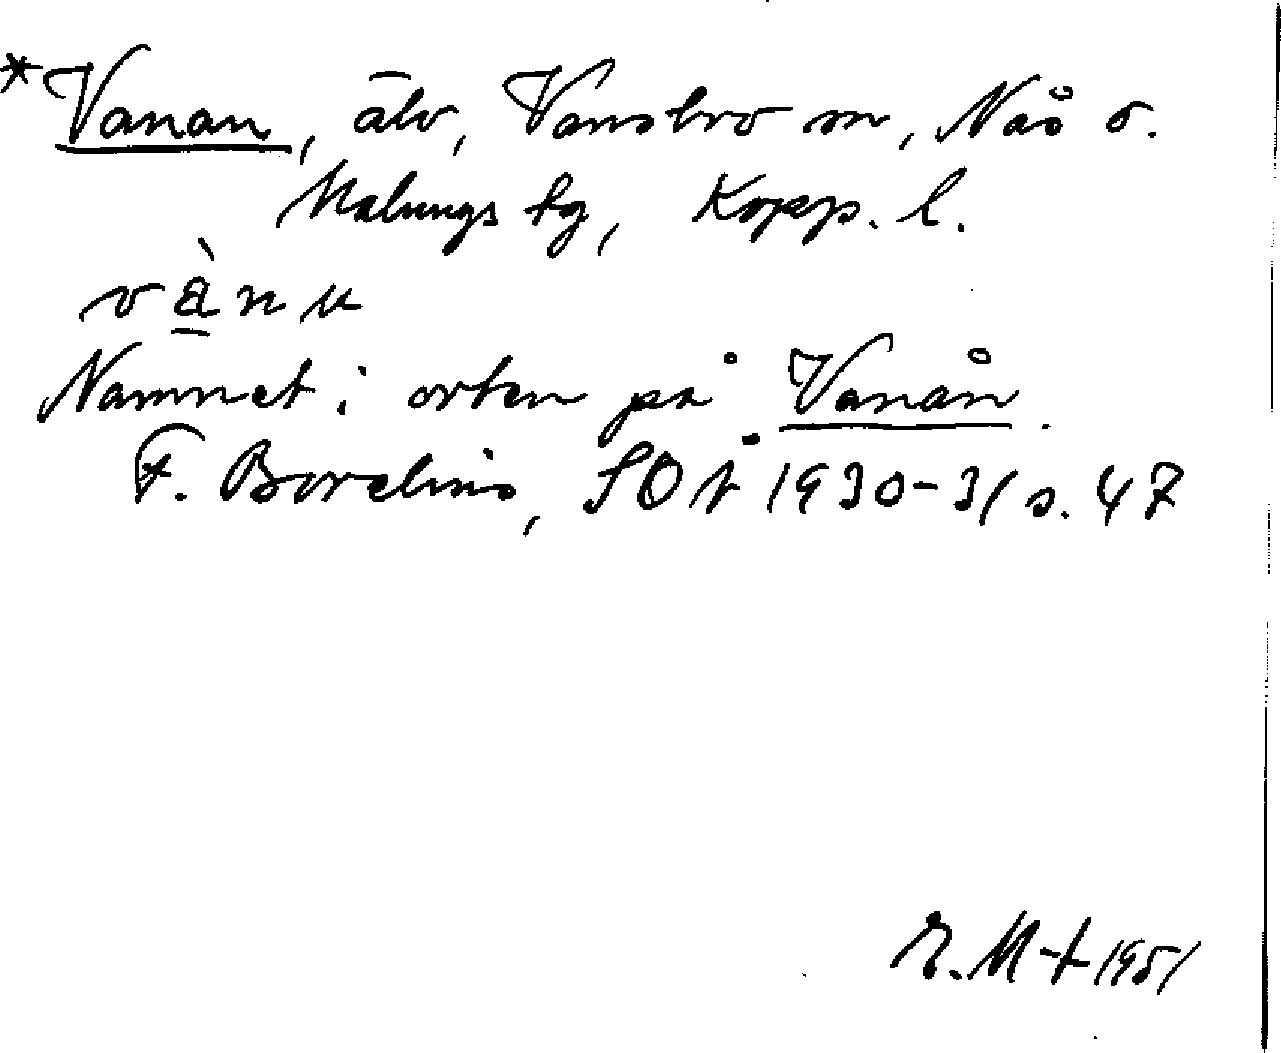 *Vanan, älv, Vansbro m, Nås o.
Malungs tg, Kopp. l.
vànu
Namnet i orten på Vanån.
F. Borelius, SOÅ 1930-31 s. 47
E. M-t 1951